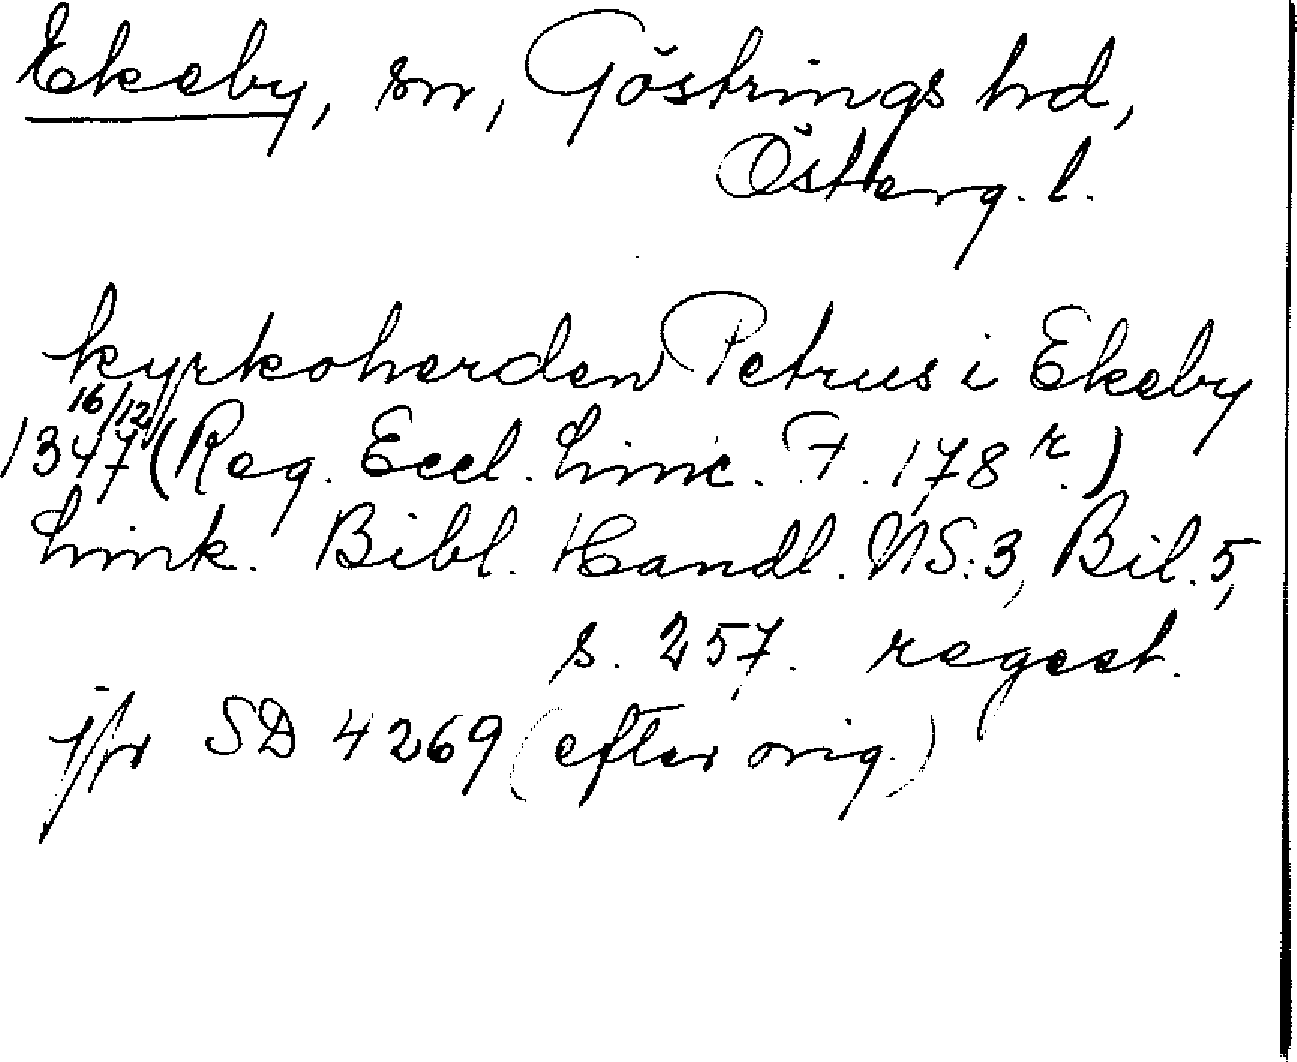 Ekeby, sn, Göstrings hd,
Österg. l.
kyrkoherden Petrus i Ekeby
16/12
1347 (Reg. Eccl. Linc. F. 178 r.)
Link. Bibl. Handl. NS:3, Bil. 5,
s. 257. regest.
jfr SD 4269 (efter orig.)